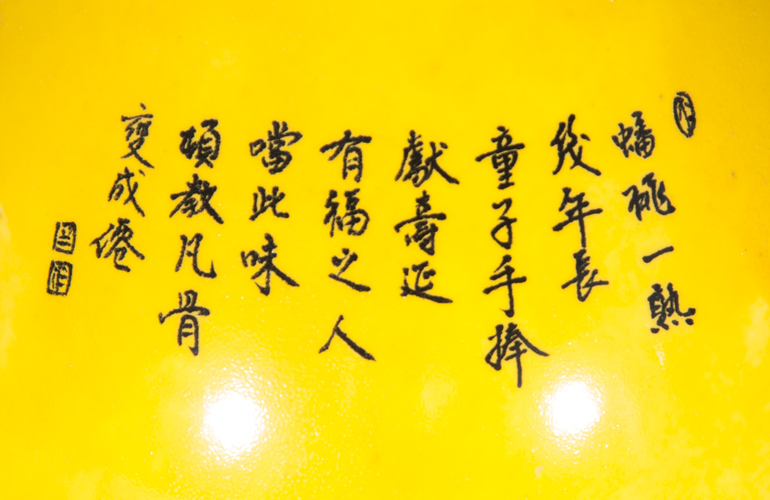 蟠桃一熟
幾年長
童子手捧
獻壽延
有福之人
噹此味
頓教凡骨
變成僊